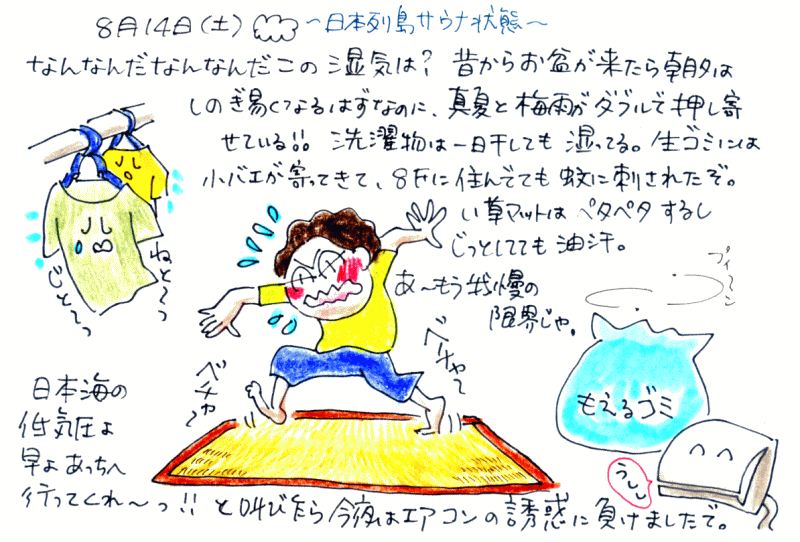 8月14日(土) ～日本列島サウナ状態～
なんなんだなんなんだこの湿気は？ 昔からお盆が来たら朝夕は
しのぎ易くなるはずなのに、真夏と梅雨がダブルで押し寄
せている!! 洗濯物は一日干しても湿ってる。生ゴミには
小バエが寄ってきて、8Fに住んでても蚊に刺されたぞ。
い草マットはペタペタするし
じっとしてても油汗。
あ～もう我慢の
限界じゃ。
ねと～っ
じと～っ
ベチャ～
ベチャ～
プイ～ン
もえるゴミ
うしし
日本海の
低気圧よ
早よあっちへ
行ってくれ～っ!! と叫びたら今夜はエアコンの誘惑に負けましたで。